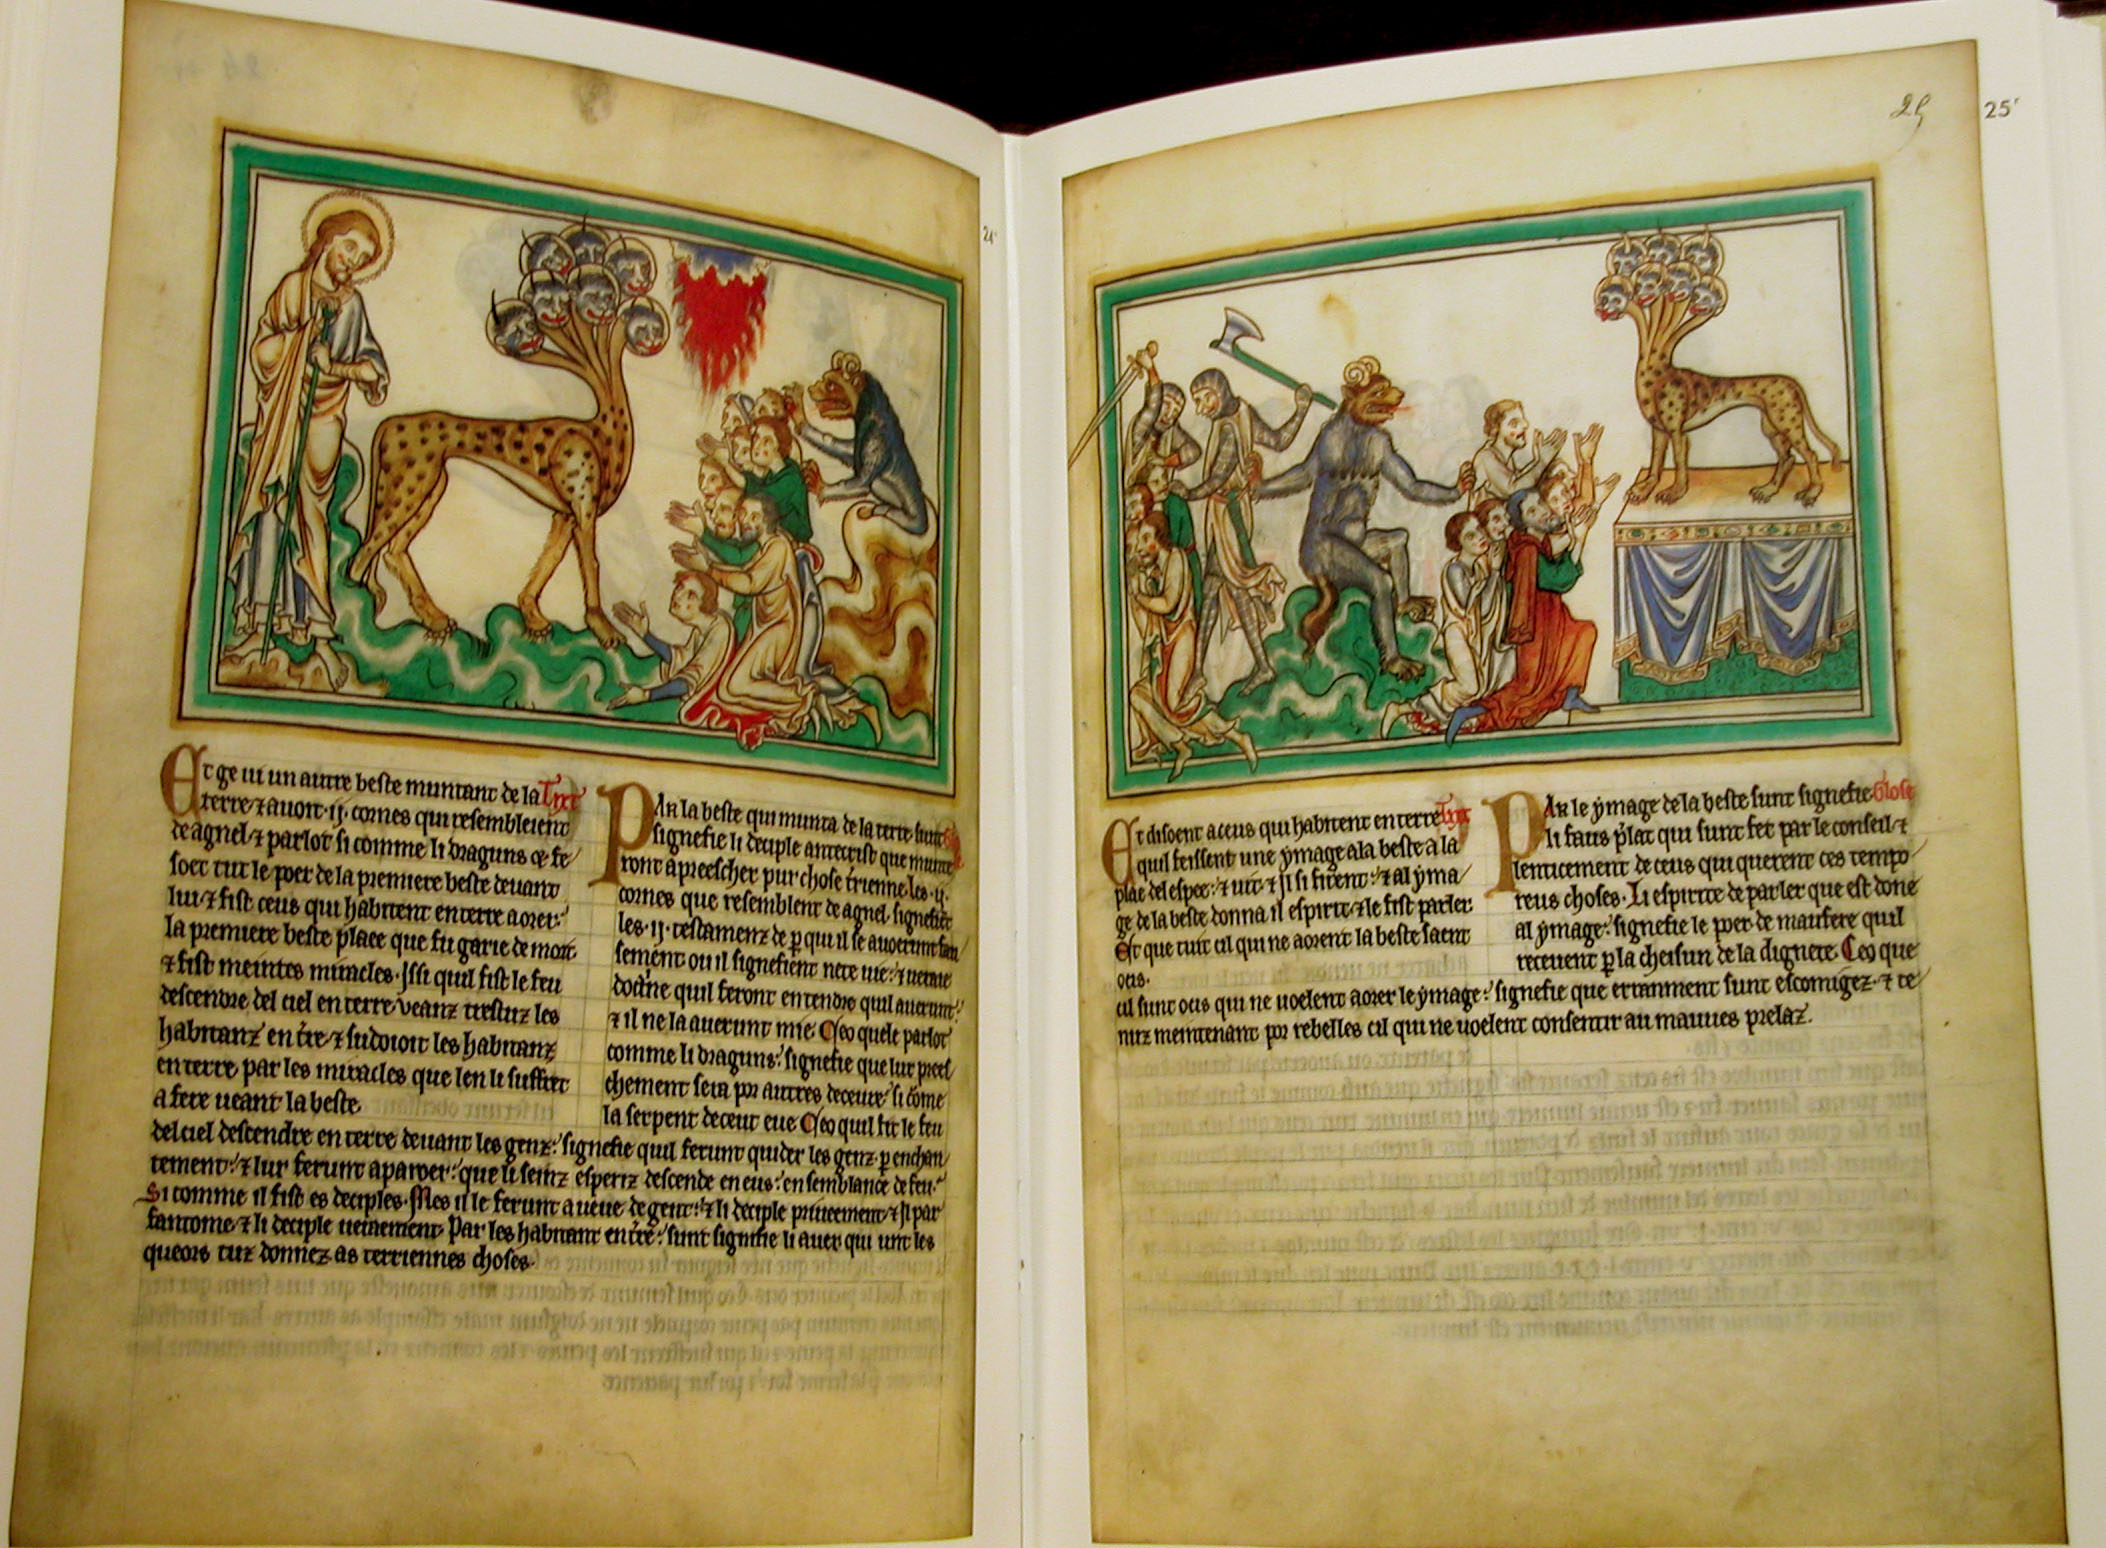 Et ge ui un autre beste muntant de la Tixt
terre ⁊ auoit .ij. cornes qui resembleient
de agnel ⁊ parlot si comme li draguns ⁊ fe
soit tut le poer de la premiere beste deuant
lui ⁊ fist ceus qui habitent en terre aorer
la premiere beste plaee que fu garie de mort
⁊ fist meintes miracles. Issi quil fist le feu
descendre del ciel en terre veanz trestuz les
habitanz en tre ⁊ suduioit les habitanz
en terre par les miracles que len li suffret
a fere ueant la beste
Par la beste qui munta de la terre sunt
signefie li deciple antecrist que munte
ront a preescher pur chose trienne les .ij.
cornes que resemblent de agnel signefient
les .ij. testamenz de p qui il se auoerunt fau
sement ou il signefient nete uie ⁊ ueraie
doctrine quil feront entendre quil auerunt
⁊ il ne la auerunt mie. Ceo quele parlot
comme li draguns signefie que lur pree
chement sera por autres deceure si come
la serpent deceut eue. Ceo quil fit le feu
del ciel descendre en terre deuant les genz signefie quil ferunt quider les genz p enchan
tement ⁊ lur ferunt aparoer que li seinz esperiz descende en eus en semblance de feu
Si comme il fist es deciples. Mes il le ferunt a ueue de gent ⁊ li deciple priueement ⁊ si par
fantome ⁊ li deciple ueraiement. Par les habitant en tre sunt signifie li auer qui unt les
queors tuz donnez as terriennes choses.
25
25r
Et disoent a ceus qui habitent en terre Tixt
quil feissent une ymage a la beste a la
plaie del espee ⁊ uit ⁊ il si firent ⁊ al yma
ge de la beste donna il espirit ⁊ le fist parler
Et que tuit cil qui ne aorent la beste saent
ocis.
Par le ymage de la beste sunt signefie Glose
li faus plat qui sunt fet par le conseil ⁊
lenticement de ceus qui querent ces tempo
reus choses. Li espirite de parler que est done
al ymage signefie le poer de maufere quil
receuent p la cheisun de la dignete. Ceo que
cil sunt ocis qui ne uoelent aorer le ymage signefie que erranment sunt escomigez ⁊ te
nuz meintenant por rebelles cil qui ne uoelent consentir au mauues prelaz.